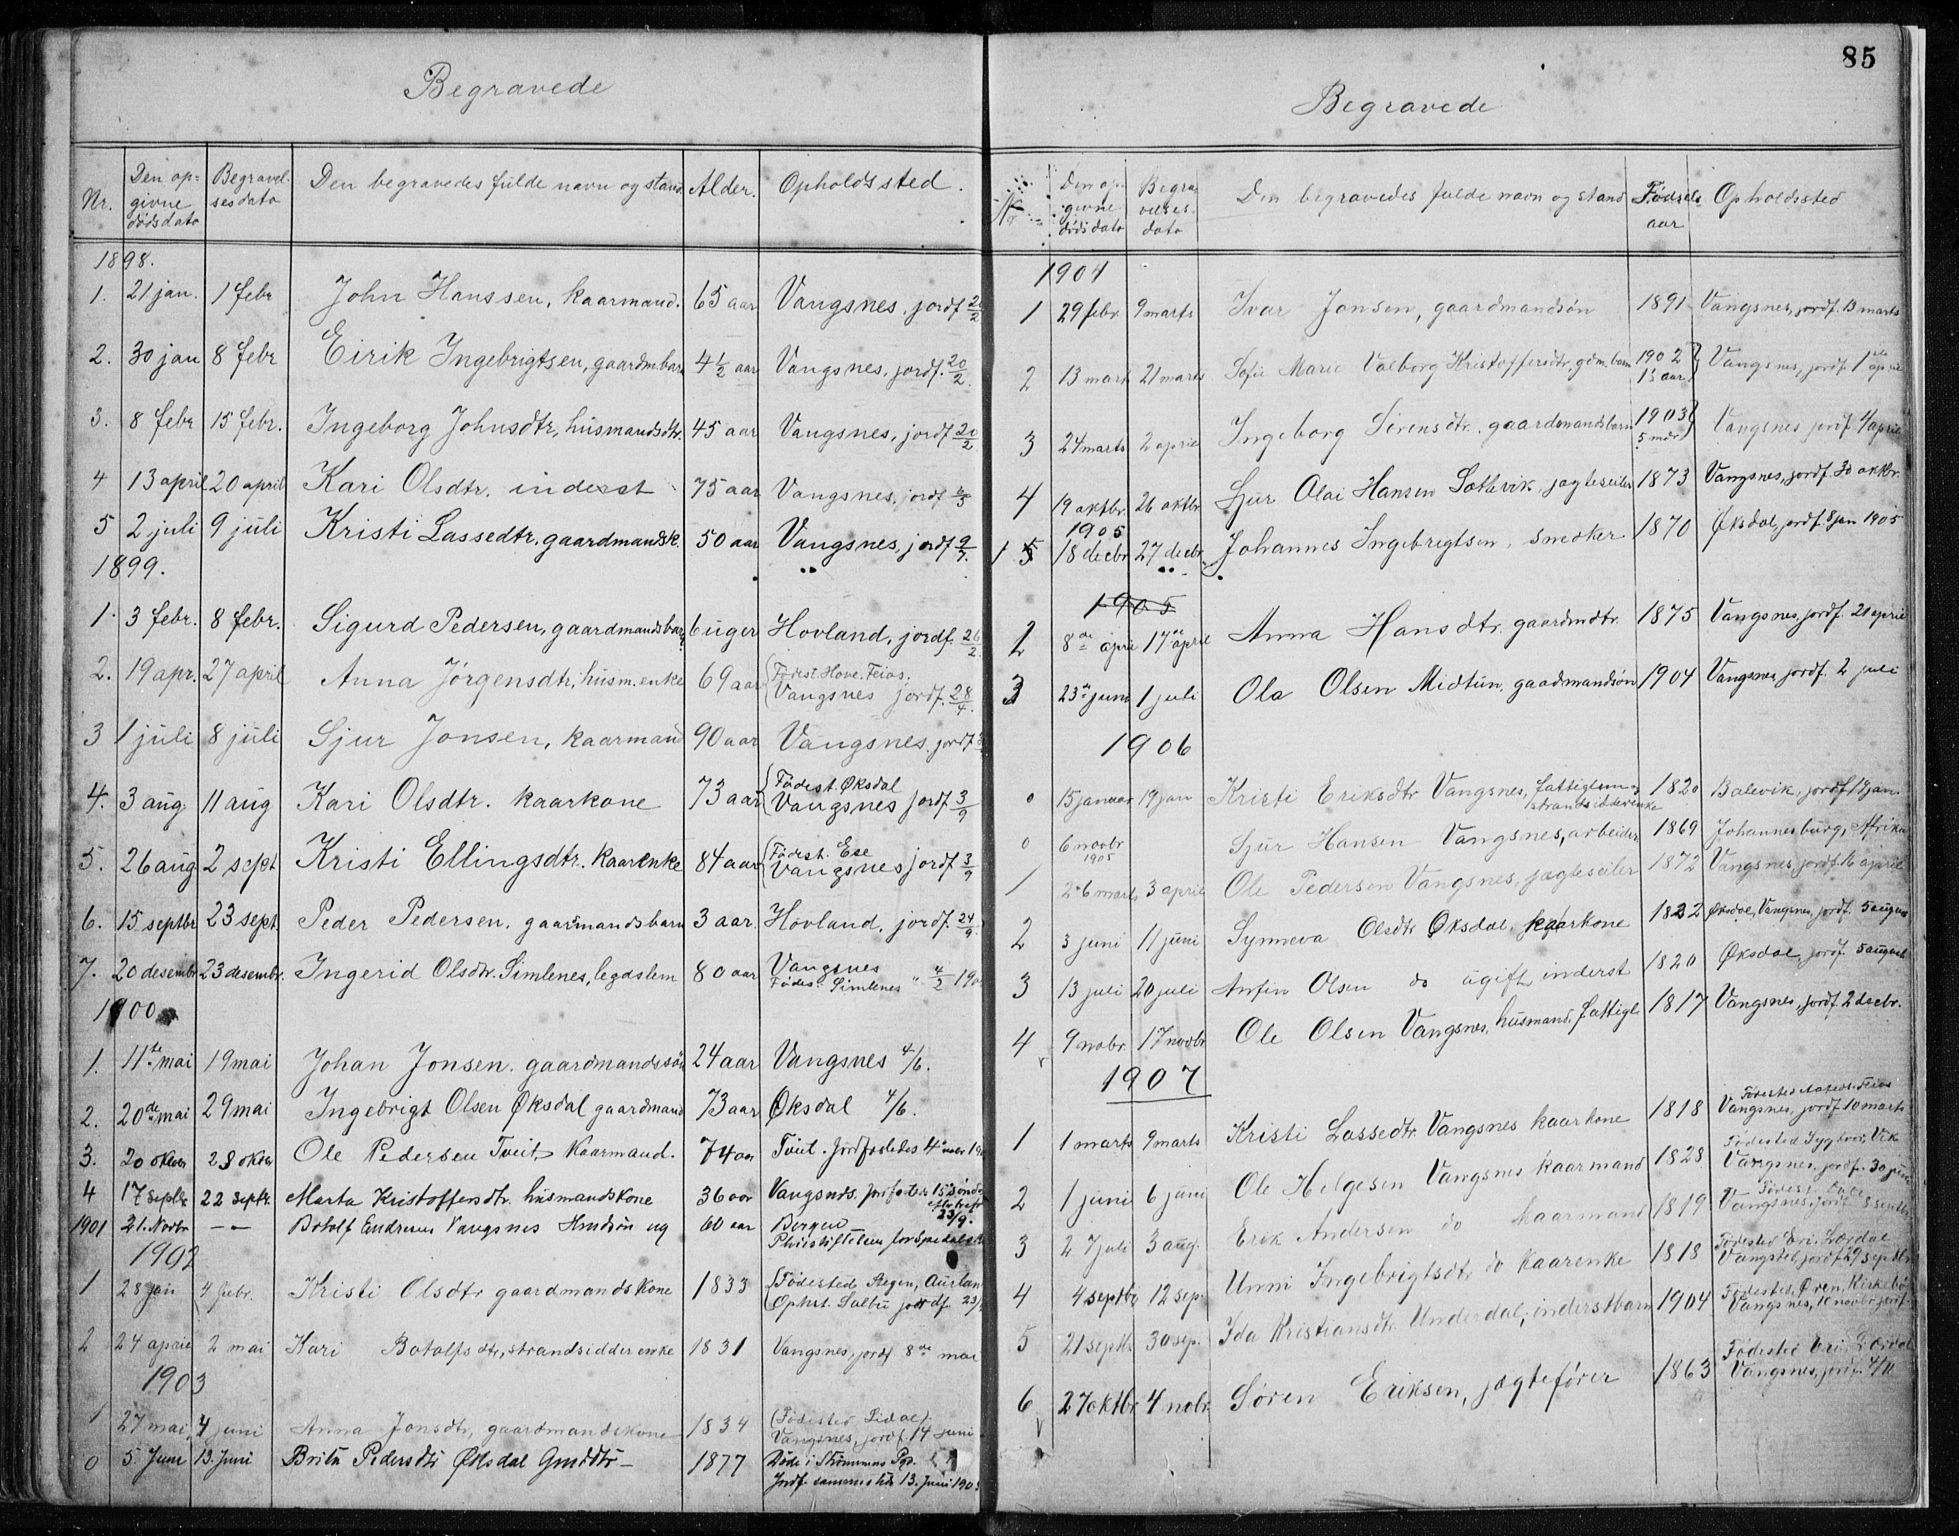 85
Begravede
Nr. Den opgivne dødsdato Begravelsesdato Den begravedes fulde navn og stand Alder. Opholdssted.
1898.
1. 21 jan. 1 febr John Hanssen, kaarmand. 65 aar Vangsnes. jordf 20/2
2. 30 jan 8 febr Eirik Ingebrigtsen, gaardm.barn 4 1/2 aar Vangsnes, jordf. 20/2.
3. 8 febr 15 febr. Ingeborg Johnsdtr, husmandsdtr. 45 aar Vangsnes, jordf 20/2
4 13 april 20 april Kari Olsdtr. inderst 75 aar Vangsnes, jordf
5 2 juli 9 juli Kristi Lassedtr. gaardmandsk. 50 aar Vangsnes, jordf 9/7.
1899.
1. 3 febr. 8 febr. Sigurd Pedersen, gaardmandsbarn 6 uger Hovland, jordf. 26/2
2. 19 apr. 27 april Anna Jørgensdtr, husm.enke 69 aar (Fødest. Hove. Feios.
Vangsnes jordf. 28/4.
3 1 juli 8 juli Sjur Jonsen, kaarmand 90 aar Vangsnes. jordf
4. 3 aug. 11 aug Kari Olsdtr. kaarkone 73 aar (Fødest. Øksdal
Vangsnes jordf 3/9
5. 26 aug 2 sept Kristi Ellingsdtr. kaarenke 84 aar (Fødest. Ese
Vangsnes jordf 3/9
6. 15 septbr 23 sept. Peder Pedersen. gaarmandsbarn 3 aar. Hovland, jordf. 24/9.
7. 20 desembr 23 desembr. Ingerid Olsdtr. Simlenes, legdslem 80 aar Vangsnes
Fødes. Simlenes " 4/2 190
1900
1. 11te mai 19 mai Johan Jonsen. gaardmandssøn 24 aar Vangsnes 4/6.
2. 20de mai 29 mai Ingebrigt Olsen Øksdal gaardmand 73 aar Øksdal 4/6.
3. 20 okber 28 okber Ole Pedersen Tveit, Kaarmand. 74 aar Tveit. jordfæstedes 4de novbr 190
4 17 septbr 22 septr. Marta Kristoffersdtr. husmandskone 36 aar Vangsnes. jordfæstedes 15 søndag
efter trefr
23/9.
1901 21. Novbr — Botolf Endresen Vangsnes Husmdsøn ug 60 aar Bergen
Pleiestiftelsen for Spedalske
1902
1 28 jan 4 febr. Kristi Olsdtr gaardmandskone 1833 (Fødested Stegen, Aurlan
(Ophst. Salbu jordf. 23/
2 24 april 2 mai Kari Botolfsdtr, strandsidderenke 1831 Vangsnes, jordf 8de mai
1903
1 27 mai 4 juni Anna Jonsdtr, gaardmandskone 1834 (Fødested Lidal).
Vangsnes, jordf. 14 juni
0 5 Juni 13. Juni Brita Pedersdtr Øksdal Gmddtr 1877 Døde i Strømmens Pgd.
Jordf. sammesteds 13. Juni 1903
Begravede
Nr Den opgivne dødsdato Begravelsesdato Den begravedes fulde navn og stand Fødselsaar Opholdssted
1904
1 29 febr. 9 marts Ivar Jonsen, gaardmandsøn 1891 Vangsnes, jordf. 13 marts
2 13 mart 21 marts Sofie Marie Valborg Kristoffersdtr, gdm.barn 1902
1½ aar } Vangsnes, jordf. 1ste april
3 24 marts 2 april Ingeborg Sørensdtr. gaardmandsbarn 1903
5 mdr } Vangsnes jordf 4 april
4 19 oktbr. 26 oktbr Sjur Olai Hansen Sætevik jægteseiler 1873 Vangsnes, jordf. 30 oktbr.
1905
1 5 18 decbr 27 decbr Johannes Ingebrigtsen, snedker 1870 Øksdal, jordf. 8 jan 1905
1905
2 8de april 17de april Anna Hansdtr. gaardmdtr. 1875 Vangsnes, jordf. 21 april
3 23de juni 1 juli Ola Olsen Midtun, gaadmandsøn 1904 Vangsnes, jordf. 2 juli
1906
0 15 januar 19 jan Kristi Eriksdtr Vangsnes, fattiglem og
strandsidderenke 1820 Balevik, jordf 19 jan.
0 6 novbr
1905 Sjur Hansen Vangsnes, arbeider 1869 Johannesburg, Afrika
1 26 marts 3 april Ole Pedersen Vangsnes, jægteseiler 1872 Vangsnes, jordf. 16 april
2 3 juni 11 juni Synneva Olsdtr Øksdal, kaarkone 1832 Øksdal, Vangsnes, jordf. 5 august
3 13 juli 20 juli Anfin Olsen do ugift, inderst 1820 Øksdal, jordf. 5 august
4 9 novbr 17 novbr Ole Olsen Vangsnes, husmand, fattigl. 1817 Vangsnes, jordf. 2 decbr.
1907
1 1 marts 9 marts Kristi Lassedtr. Vangsnes kaarkone 1818 Fødested Feios
Vangsnes, jordf. 10 marts
2 1 juni 6 juni Ole Helgesen Vangsnes kaarmand 1828 Fødested Vik
Vangsnes, jordf. 30 juni
3 27 juli 3 aug. Erik Andersen do kaarmand 1819 Fødest.
Vangsnes, jordf. 8 septbr
4 4 septbr 12 sep. Unni Ingebrigtsdtr. do kaarenke 1818 Fødested Eri, Lærdal
Vangsnes, jordf. 29 septbr
5 21 septbr 30 sep. Ida Kristiansdtr. Underdal, inderstbarn 1904 Fødested, Øren, Kirkebø
Vangsnes, 10 novbr jordf.
6 27 oktbr. 4 nobr. Søren Eriksen, jægtefører 1863 Fødested Eri, Lærdal
Vangsnes, jordf. 4/11